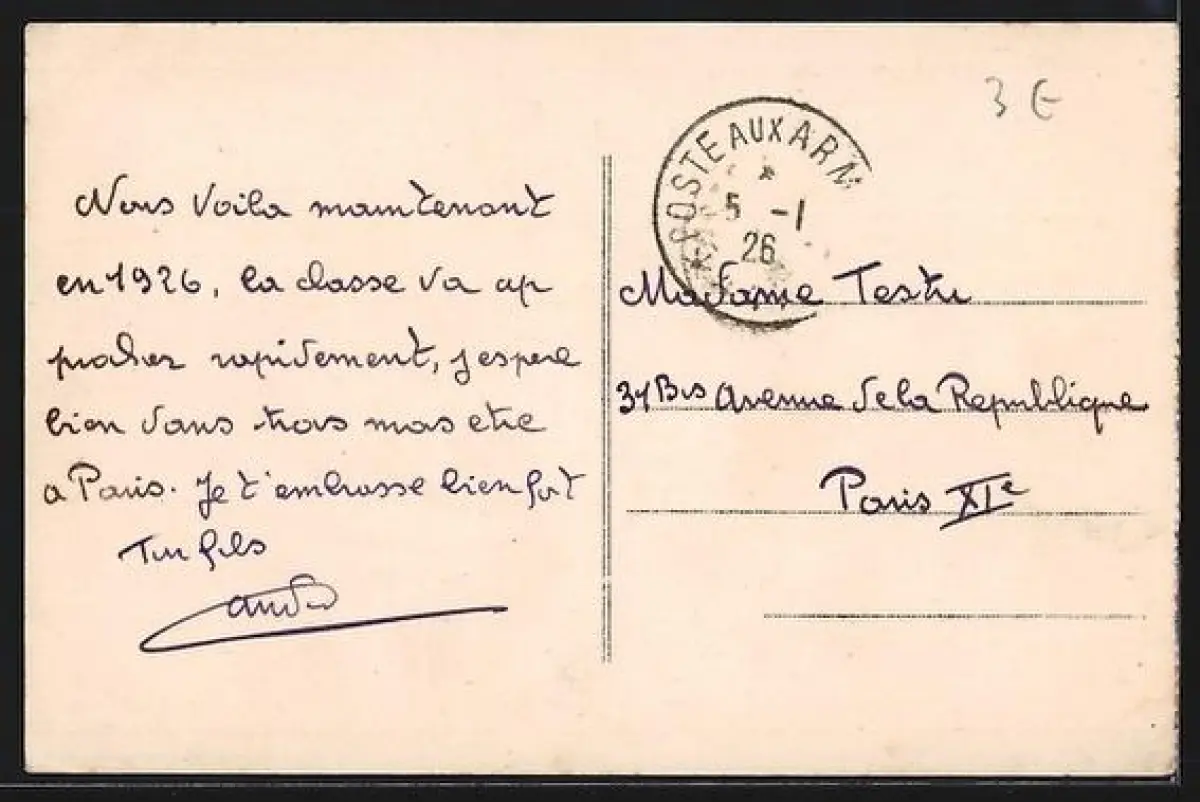 Nous Voila maintenant
en 1926, la classe va ap
procher rapidement, j espere
bien dans trois mois etre
a Paris. Je t'embrasse bien fort
Ton fils
André
3 E
POSTE AUX ARM
5 -1
26
Madame Testu
31 Bis Avenue de la Republique
Paris XIe